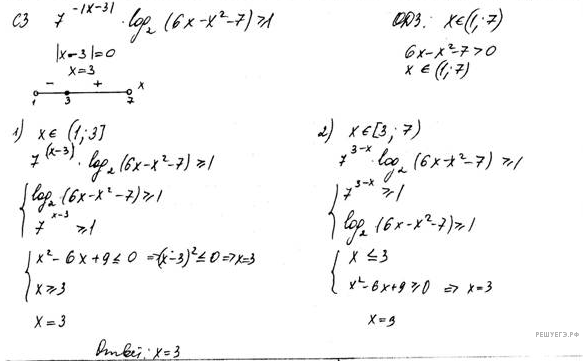 C3 7^{-|x-3|} · log₂(6x-x²-7) ≥ 1
ОДЗ: x∈(1;7)
|x-3|=0
x=3
6x-x²-7>0
x∈(1;7)
- + x
1 3 7
1) x∈(1;3]
7^{(x-3)} · log₂(6x-x²-7) ≥ 1
{ log₂(6x-x²-7) ≥ 1
7^{x-3} ≥ 1
{ x²-6x+9 ≤ 0 ⇒ (x-3)² ≤ 0 ⇒ x=3
x ≥ 3
x=3
2) x∈[3;7)
7^{3-x} · log₂(6x-x²-7) ≥ 1
{ 7^{3-x} ≥ 1
log₂(6x-x²-7) ≥ 1
{ x ≤ 3
x²-6x+9 ≥ 0 ⇒ x=3
x=3
Ответ: x=3
РЕШУЕГЭ.РФ